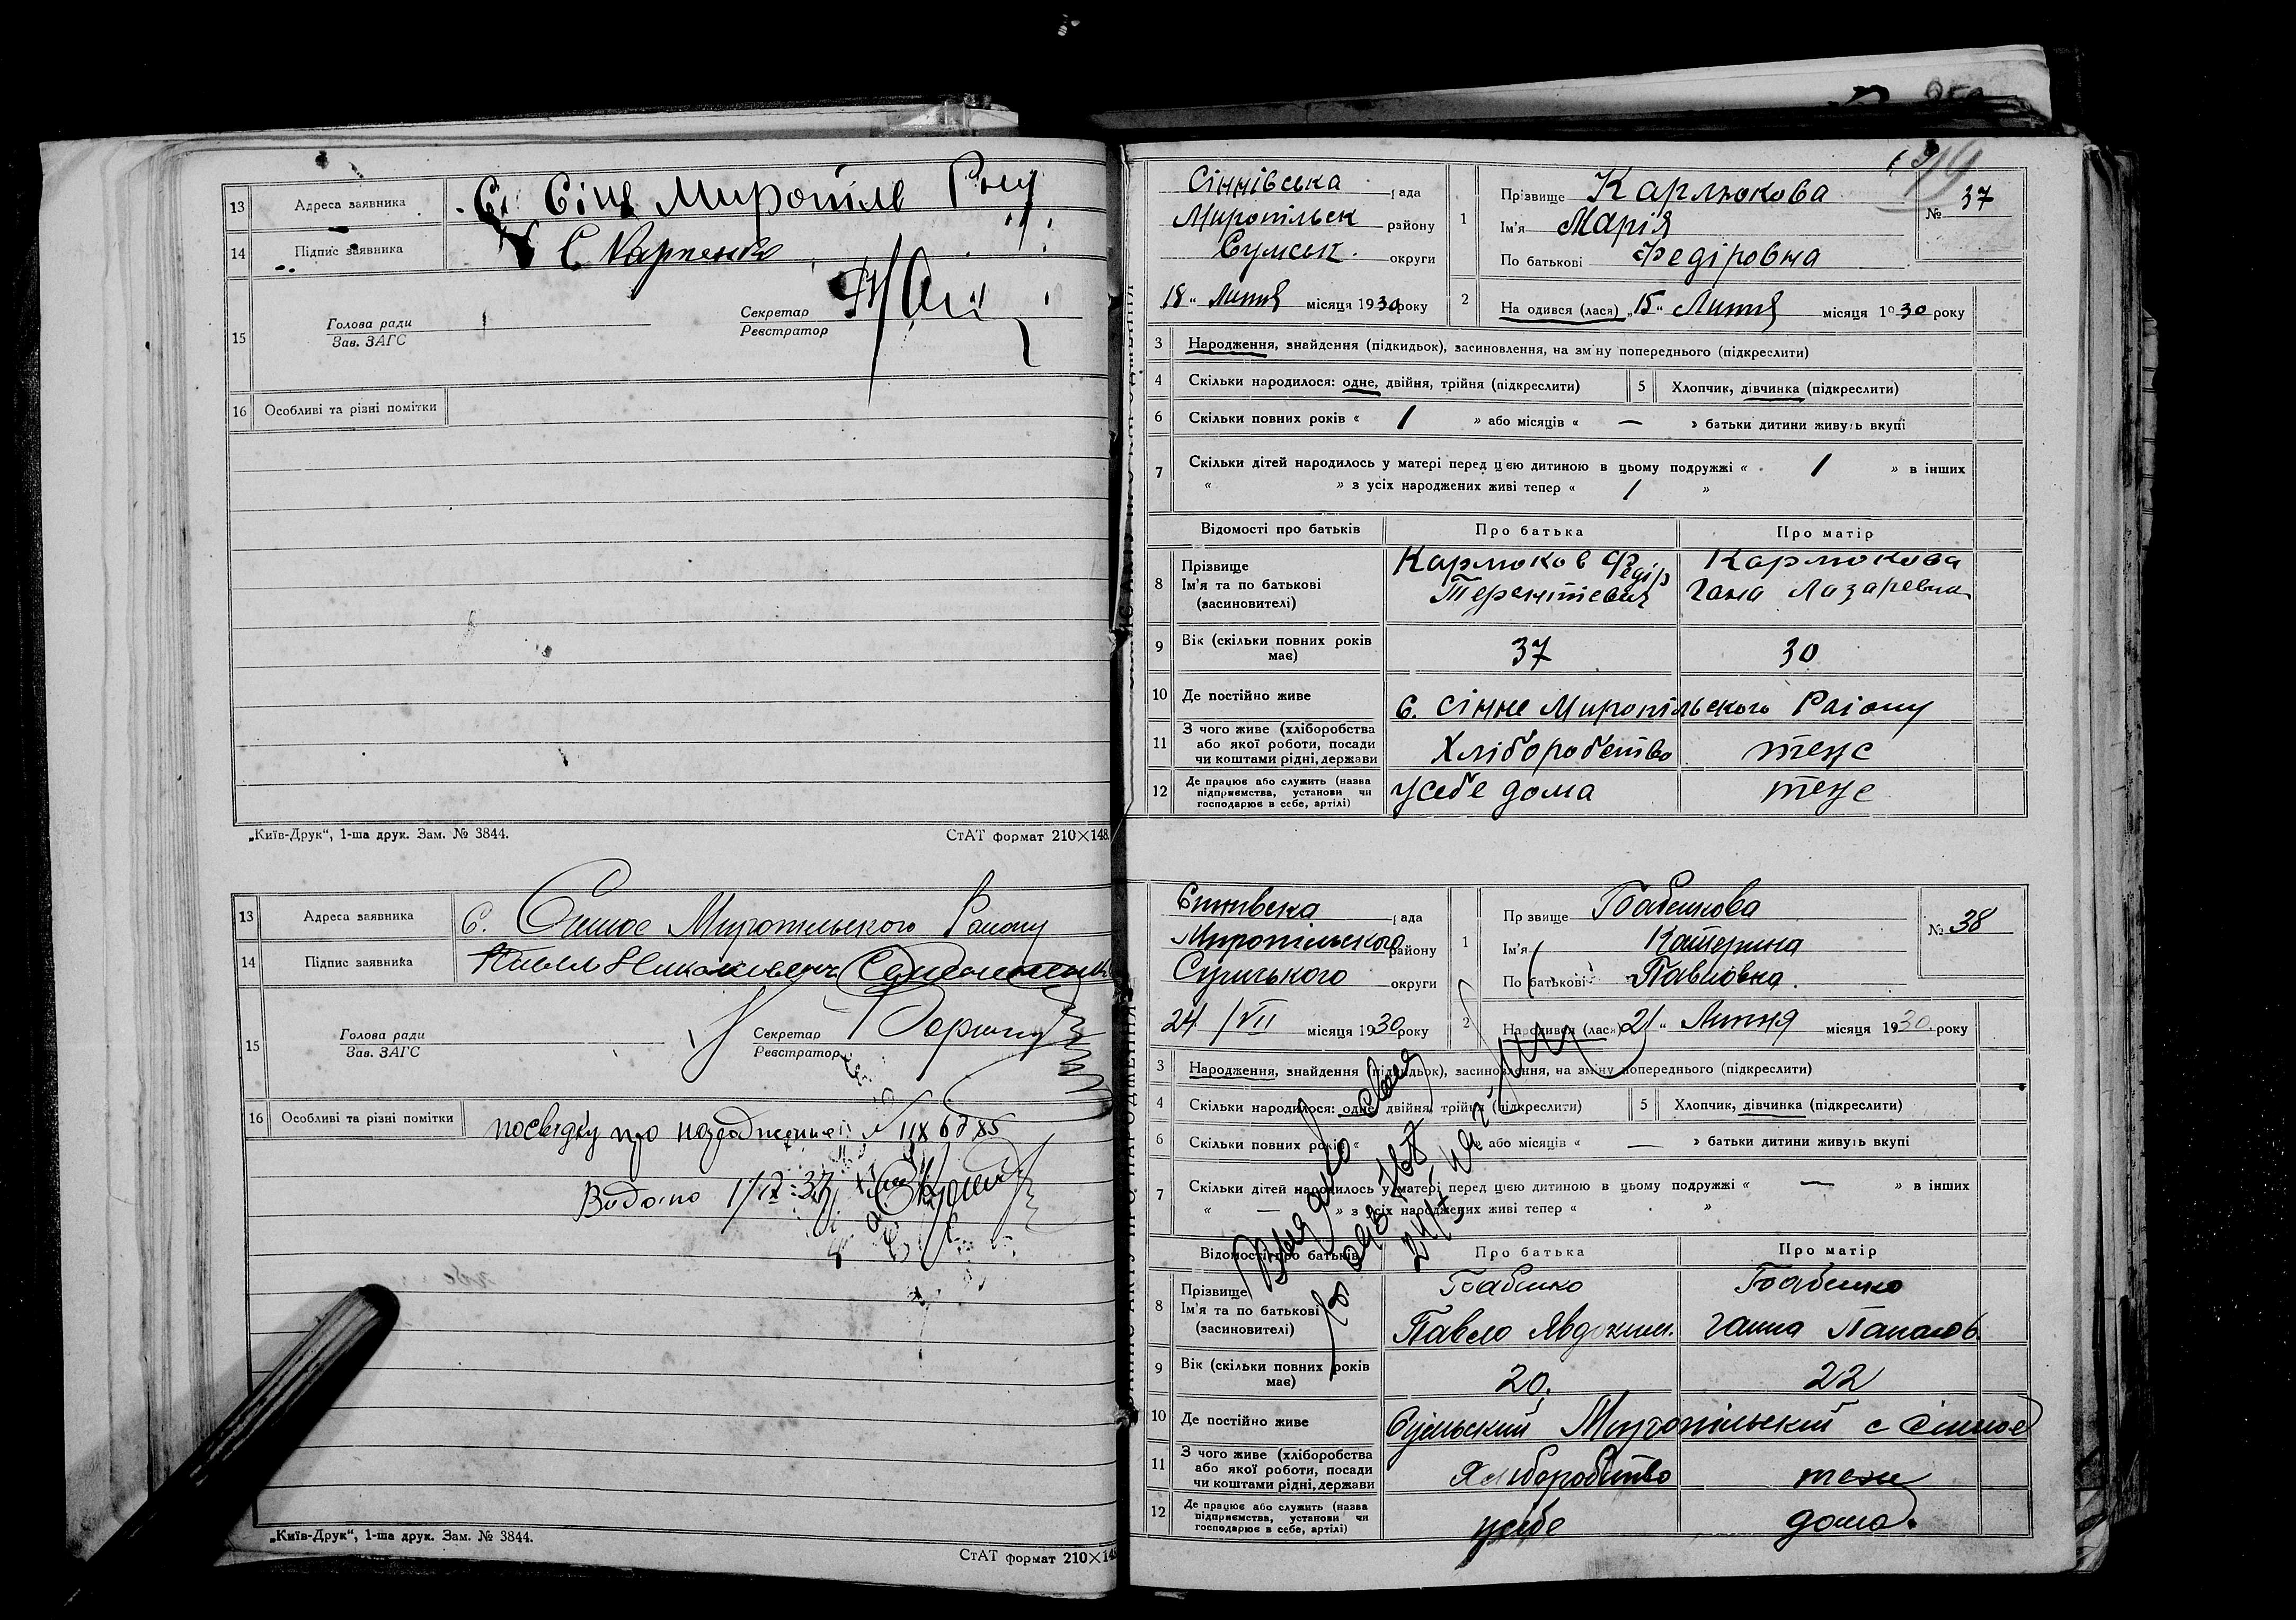 13 Адреса заявника С. Сіне Миропілє Рну
14 Підпис заявника С Карпенко
15 Голова ради
Зав. ЗАГС
Секретар
Реєстратор
16 Особливі та різні помітки
„Київ-Друк“, 1-ша друк. Зам. № 3844. СтАТ формат 210×148.
13 Адреса заявника С. Сінное Миропильского Району
14 Підпис заявника
15 Голова ради
Зав. ЗАГС
Секретар
Реєстратор
16 Особливі та різні помітки посвідку про народження
Видано
„Київ-Друк“, 1-ша друк. Зам. № 3844.
СтАТ формат 210×148
Сіннівська рада
Миропільськ району
Сумськ. округи
18 „ Липня місяця 1930 року
№ 37
1 Прізвище Карлюкова
Ім'я Марія
По батькові Федіровна
2 На одився (лася) „15“ Липня місяця 1930 року
3 Народження, знайдення (підкидьок), засиновлення, на зміну попереднього (підкреслити)
4 Скільки народилося: одне, двійня, трійня (підкреслити) 5 Хлопчик, дівчинка (підкреслити)
6 Скільки повних років « 1 » або місяців « — » батьки дитини живуть вкупі
7 Скільки дітей народилось у матері перед цією дитиною в цьому подружжі « 1 » в інших
« » з усіх народжених живі тепер « 1 »
Відомості про батьків Про батька Про матір
8 Прізвище Карлюков Федір Карлюкова
Ім'я та по батькові Терентієвич Гана Лазаревна
(засиновителі)
9 Вік (скільки повних років має) 37 30
10 Де постійно живе с. Сінне Миропільського Району
11 З чого живе (хліборобства або якої роботи, посади чи коштами рідні, держави Хліборобство теже
12 Де працює або служить (назва підприємства, установи чи господарює в себе, артілі) усебе дома теже
Сіннівська рада
Миропільського району
Сумського округи
24 / VII місяця 1930 року
№ 38
1 Прізвище Бабенкова
Ім'я Катерина
По батькові Павловна
2 Народився (лася) 21 „ Липня місяця 1930 року
3 Народження, знайдення (підкидьок), засиновлення, на зміну попереднього (підкреслити)
4 Скільки народилося: одне, двійня, трійня (підкреслити) 5 Хлопчик, дівчинка (підкреслити)
6 Скільки повних років « » або місяців « — » батьки дитини живуть вкупі
7 Скільки дітей народилось у матері перед цією дитиною в цьому подружжі « — » в інших
« — » з усіх народжених живі тепер « »
Відомості про батьків Про батька Про матір
8 Прізвище Бабенко Бабенко
Ім'я та по батькові Павло Явдоким. Ганна Панасов.
(засиновителі)
9 Вік (скільки повних років має) 20. 22
10 Де постійно живе Сумський Миропільский с Сінное
11 З чого живе (хліборобства або якої роботи, посади чи коштами рідні, держави Хліборобство теже
12 Де працює або служить (назва підприємства, установи чи господарює в себе, артілі) усебе дома.